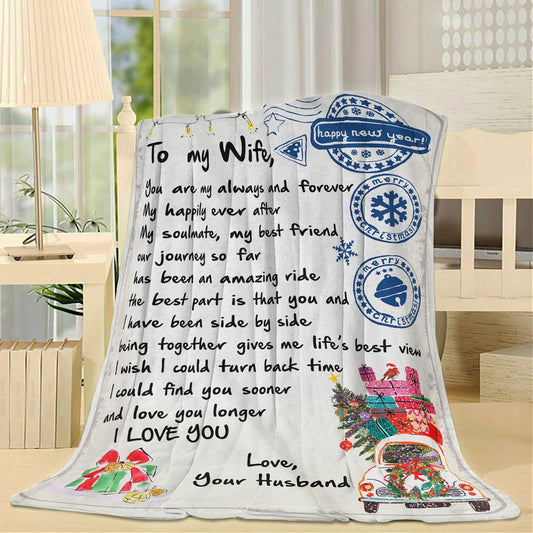 happy new year!
To my Wife,
You are my always and forever
My happily ever after
My soulmate, my best friend
our journey so far
has been an amazing ride
the best part is that you and
I have been side by side
being together gives me life's best view
I wish I could turn back time
I could find you sooner
and love you longer
I LOVE YOU
Love,
Your Husband
merry
christmas!
merry
christmas!